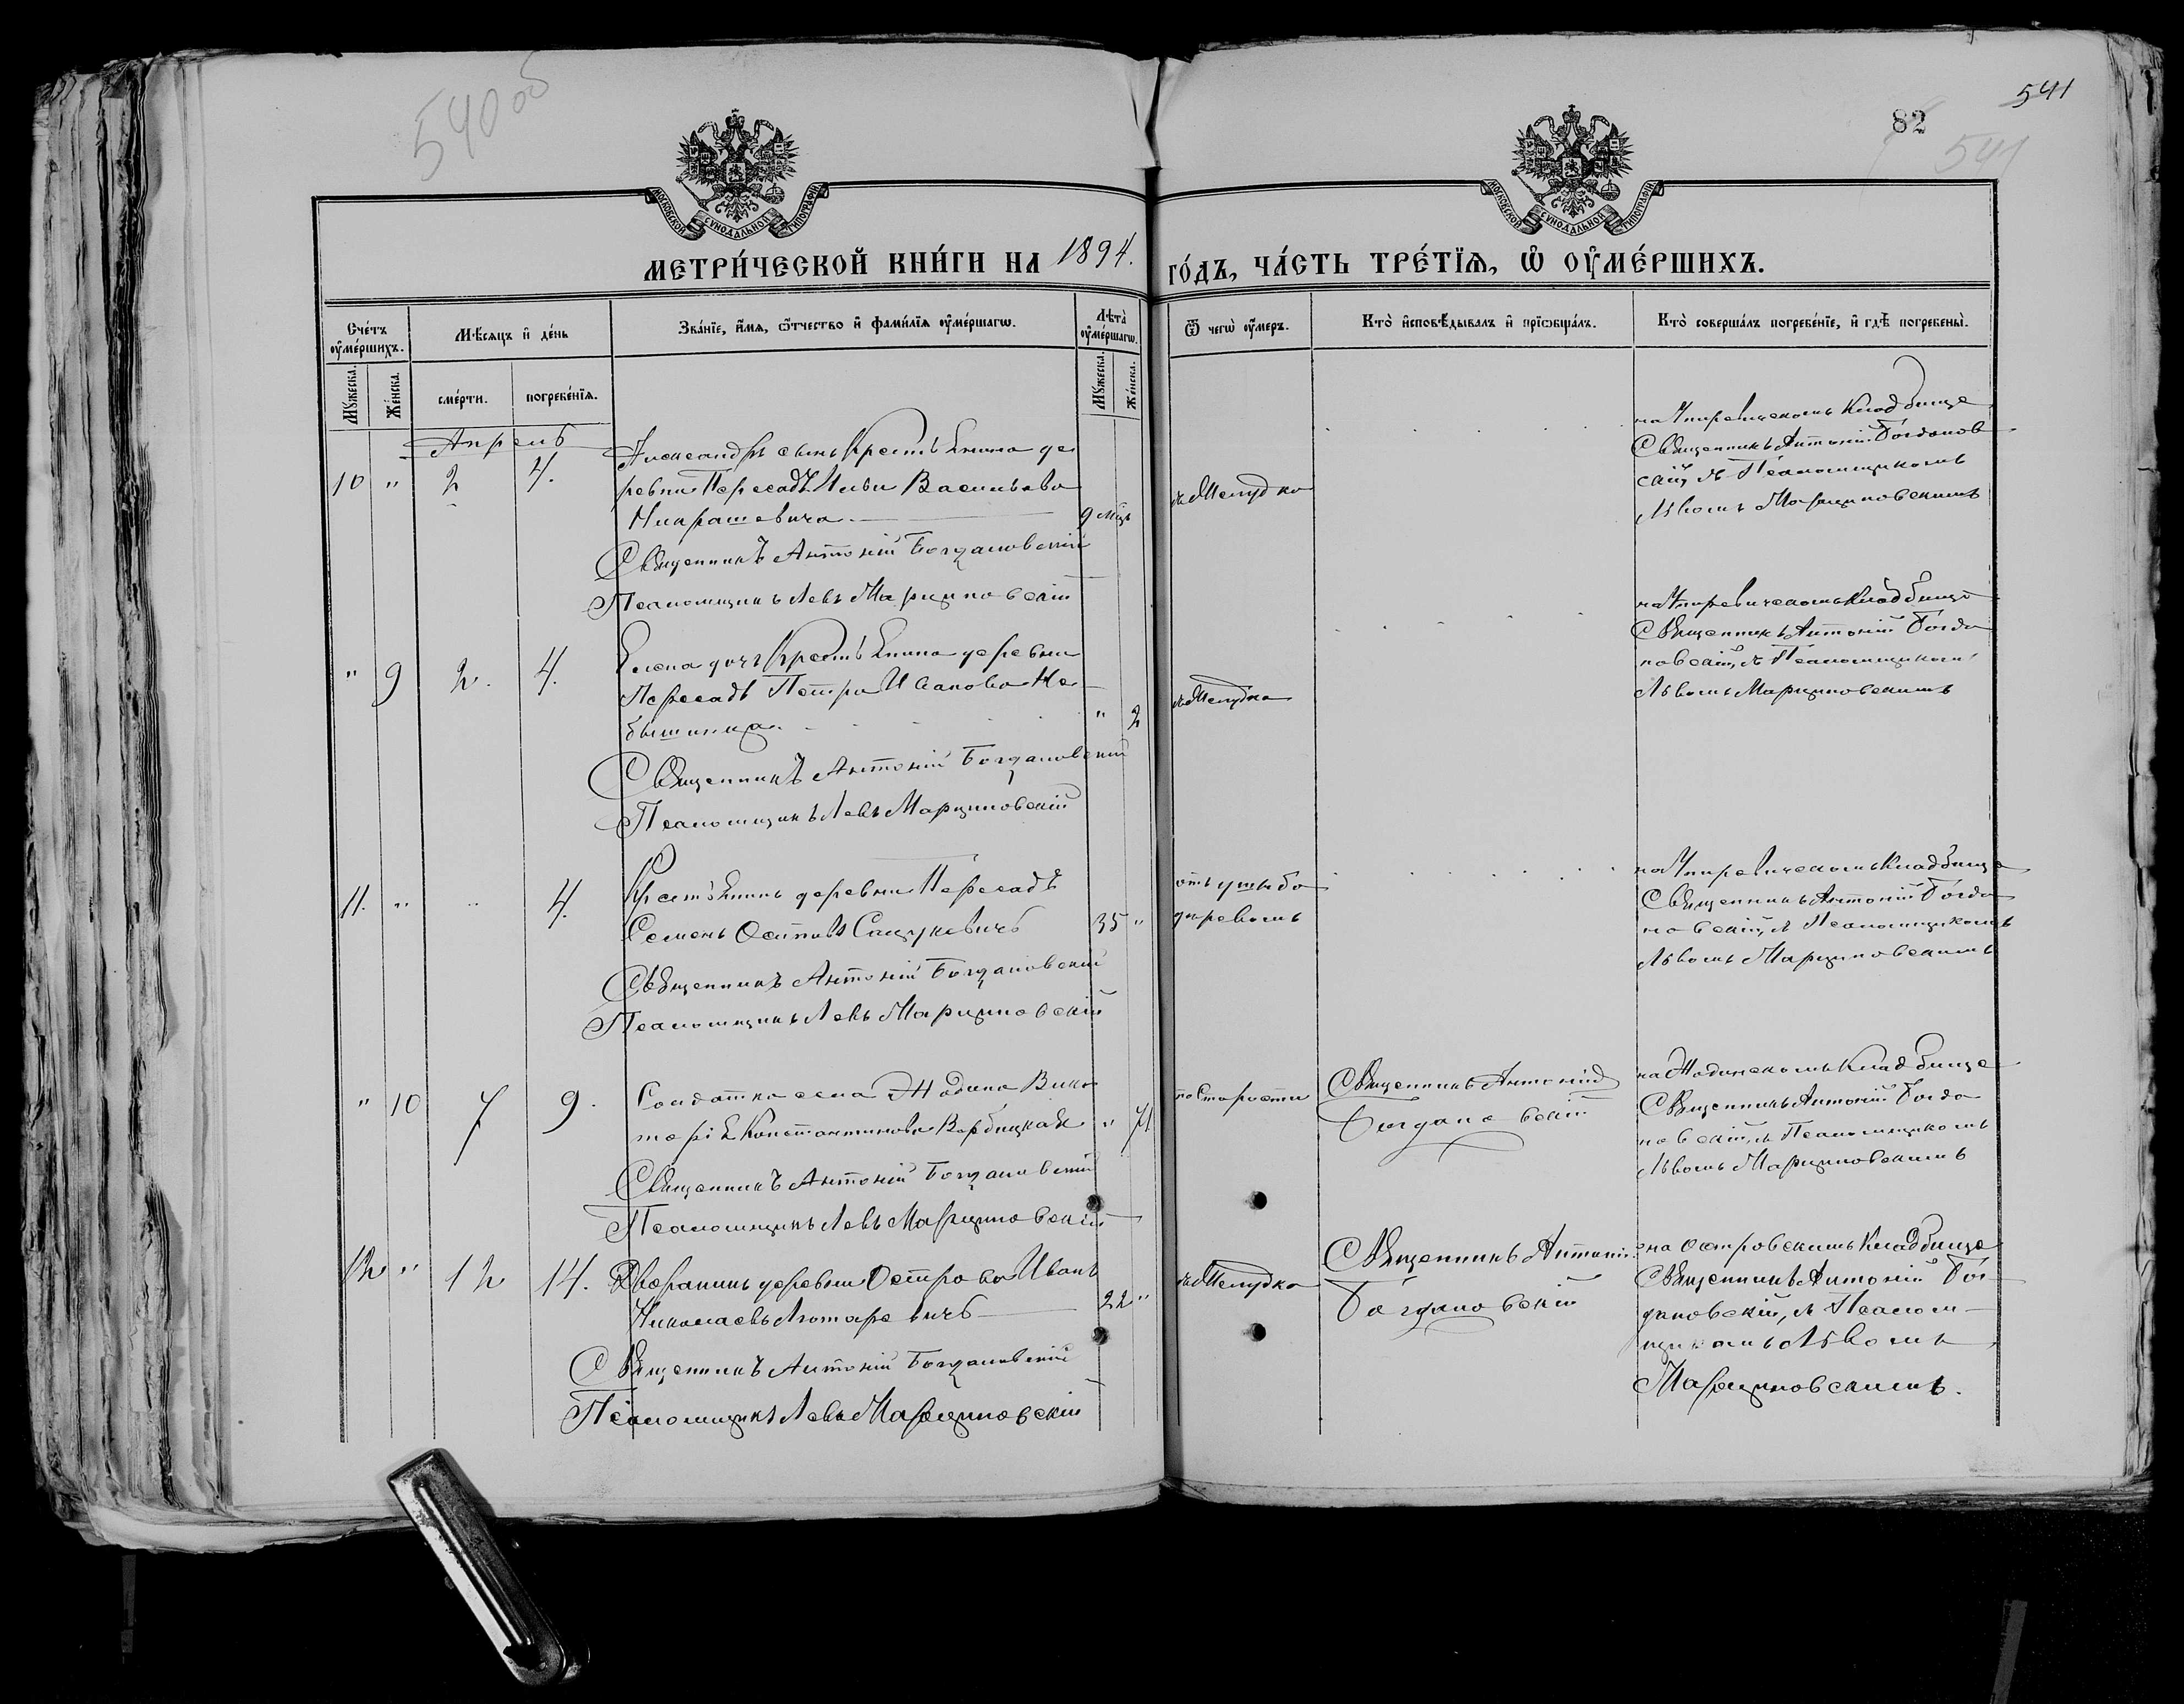 540 об
541
82
541
МОСКОВСКОЙ СУНОДАЛЬНОЙ ТИПОГРАФІИ
МОСКОВСКОЙ СУНОДАЛЬНОЙ ТИПОГРАФІИ
МЕТРИ́ЧЕСКОЙ КНИ́ГИ НА 1894. ГО́ДЪ, ЧА́СТЬ ТРЕ́ТЇѦ, Ѡ҆ ОУ҆МЕ́РШИХЪ.
Сче́тъ оу҆ме́ршихъ.
Мꙋжеска.
Же́нска.
Мѣ́сѧцъ и҆ де́нь
сме́рти.
погребе́нїѧ.
Зва́нїе, и҆́мѧ, ѻ҆́тчество и҆ фами́лїѧ оу҆ме́ршагѡ.
Лѣта̀ оу҆ме́ршагѡ.
Мꙋжеска.
Же́нска.
Ѿ чегѡ̀ оу҆́меръ.
Кто̀ и҆сповѣ́дывалъ и҆ прїѡбща́лъ.
Кто̀ соверша́лъ погребе́нїе, и҆ гдѣ̀ погребены̀.
Апрель
10 " 2 4.
Александръ сынъ Крестьянина де
ревни Пересадъ Ильи Васильева
Никрашевича 9 мцъ
Священникъ Антоній Богдановскій
Псаломщикъ Левъ Марциновскій
священникъ Антоній Богданов
скій, съ Псаломщикомъ
Львомъ Марциновскимъ
" 9 2. 4.
Елена дочь Крестьянина деревни
Пересадъ Петра Иванова
" 2
Священникъ Антоній Богдановскій
Псаломщикъ Левъ Марциновскій
Священникъ Антоній Богда
новскій, съ Псаломщикомъ
Львомъ Марциновскимъ
11. " " 4.
Крестьянинъ деревни Пересадъ
Семенъ Осиповъ Сацукевичъ 35 "
Священникъ Антоній Богдановскій
Псаломщикъ Левъ Марциновскій
деревомъ
Священникъ Антоній Богда
новскій, съ Псаломщикомъ
Львомъ Марциновскимъ
" 10 7 9.
Солдатка села Жодина Вик
торія Константинова Вербицкая " 71
Священникъ Антоній Богдановскій
Псаломщикъ Левъ Марциновскій
по Старости
Священникъ Антоній
Богдановскій
на Жодинскомъ Кладбище
Священникъ Антоній Богда
новскій, съ Псаломщикомъ
Львомъ Марциновскимъ
12 " 12 14.
Дворянинъ деревни Острова Иванъ
Николаевъ Лютаревичъ 22 "
Священникъ Антоній Богдановскій
Псаломщикъ Левъ Марциновскій
Священникъ Антоній
Богдановскій
на Островскимъ Кладбище
Священникъ Антоній Бог
дановскій, съ Псалом
щикомъ Львомъ
Марциновскимъ.